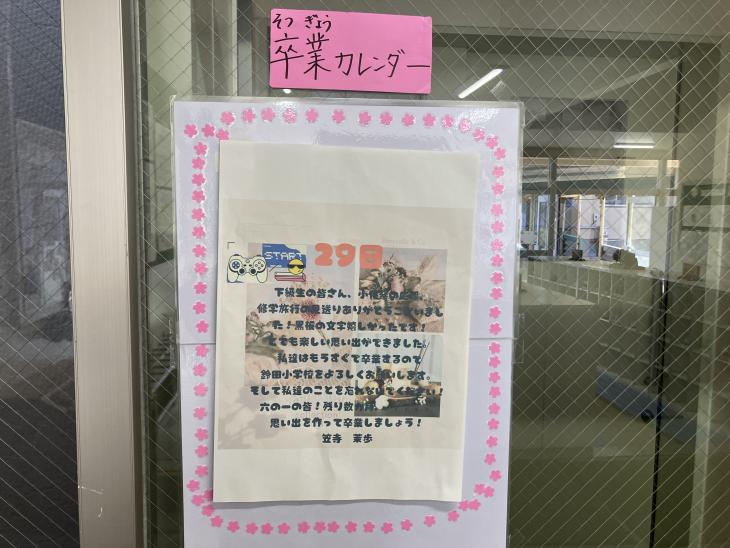 そつ ぎょう
卒業カレンダー
START
29日
下級生の皆さん、
修学旅行の見送りありがとうございまし
た！黒板の文字嬉しかったです！
とても楽しい思い出ができました。
私達はもうすぐで卒業するので
鈴田小学校をよろしくお願いします。
そして私達のことを忘れないでください！
六の一の皆！残り数カ月、
思い出を作って卒業しましょう！
笠寺 茉歩